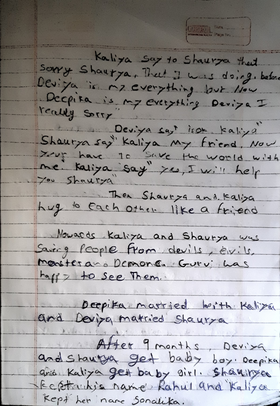 Kaliya say to Shaurya that
sorry Shaurya, that I was doing, before
Deviya is my everything but now
Deepika is my everything Deviya I
really sorry
Deviya say" icon kaliya"
Shaurya say" Kaliya my friend, Now
your have to save the world with
me. Kaliya say" yes, I will help
you Shaurya
Then Shaurya and Kaliya
hug to Each other like a friend
Nowards Kaliya and Shaurya was
Saving people from devils, evils,
and Demone. Guru was
happy to see Them.
Deepika married with Kaliya
and Deviya married Shaurya
After 9 months, Deviya
and Shaurya get baby boy. Deepika
and Kaliya get baby girl. Shaurya
kept his name Rahul and Kaliya
kept her name Sonalika.